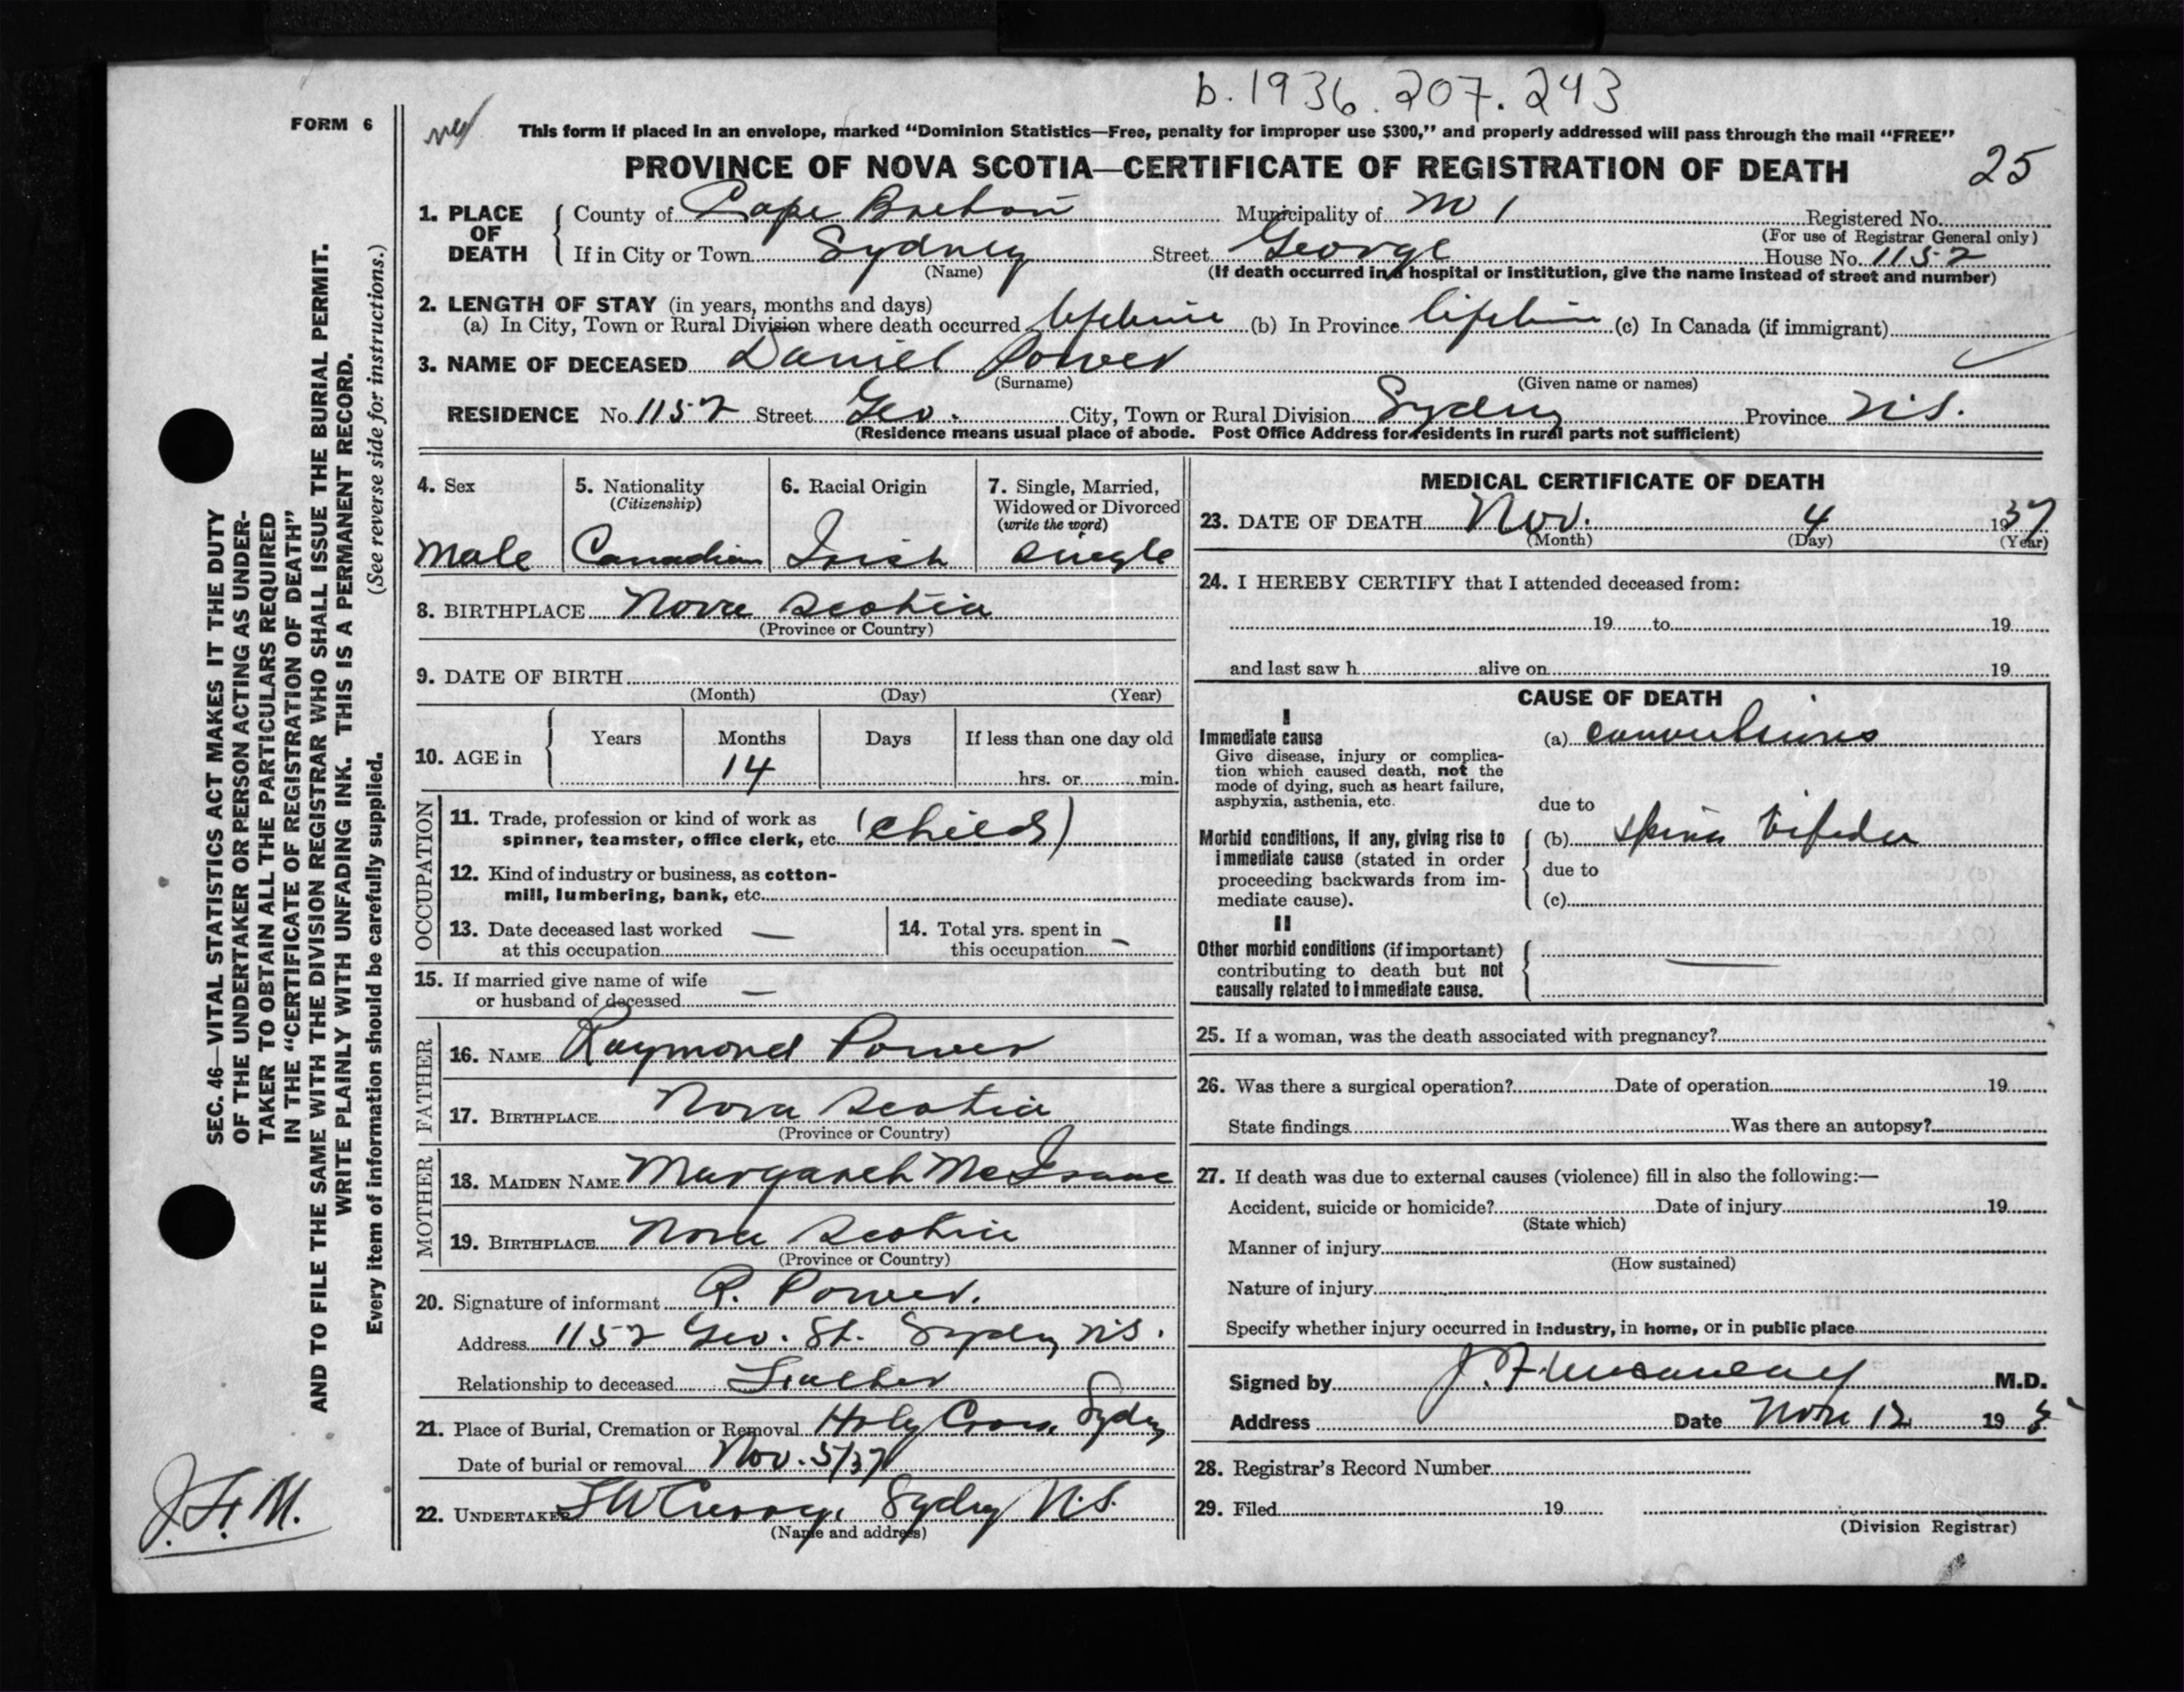 b.1936.207.243
FORM 6
This form if placed in an envelope, marked “Dominion Statistics—Free, penalty for improper use $300,” and properly addressed will pass through the mail “FREE”
PROVINCE OF NOVA SCOTIA—CERTIFICATE OF REGISTRATION OF DEATH 25
1. PLACE OF DEATH County of Cape Breton Municipality of No 1 Registered No.
(For use of Registrar General only)
If in City or Town Sydney Street George House No. 1152
(Name) (If death occurred in a hospital or institution, give the name instead of street and number)
2. LENGTH OF STAY (in years, months and days)
(a) In City, Town or Rural Division where death occurred lifetime (b) In Province lifetime (c) In Canada (if immigrant)
3. NAME OF DECEASED Daniel Power
(Surname) (Given name or names)
RESIDENCE No. 1152 Street Geo. City, Town or Rural Division Sydney Province N.S.
(Residence means usual place of abode. Post Office Address for residents in rural parts not sufficient)
4. Sex
Male
5. Nationality
(Citizenship)
Canadian
6. Racial Origin
Irish
7. Single, Married,
Widowed or Divorced
(write the word)
Single
8. BIRTHPLACE Nova Scotia
(Province or Country)
9. DATE OF BIRTH
(Month) (Day) (Year)
10. AGE in Years Months Days If less than one day old
14 hrs. or min.
OCCUPATION
11. Trade, profession or kind of work as
spinner, teamster, office clerk, etc. (child)
12. Kind of industry or business, as cotton-
mill, lumbering, bank, etc.
13. Date deceased last worked
at this occupation —
14. Total yrs. spent in
this occupation —
15. If married give name of wife
or husband of deceased —
FATHER
16. NAME Raymond Power
17. BIRTHPLACE Nova Scotia
(Province or Country)
MOTHER
18. MAIDEN NAME Margaret McIsaac
19. BIRTHPLACE Nova Scotia
(Province or Country)
20. Signature of informant R. Power.
Address 1152 Geo. St. Sydney N.S.
Relationship to deceased Father
21. Place of Burial, Cremation or Removal Holy Cross Sydney
Date of burial or removal Nov. 5/37
22. UNDERTAKER Sydney N.S.
(Name and address)
MEDICAL CERTIFICATE OF DEATH
23. DATE OF DEATH Nov. 4 1937
(Month) (Day) (Year)
24. I HEREBY CERTIFY that I attended deceased from:
19 to 19
and last saw h alive on 19
CAUSE OF DEATH
I
Immediate cause
Give disease, injury or complica-
tion which caused death, not the
mode of dying, such as heart failure,
asphyxia, asthenia, etc.
(a) convulsions
due to
Morbid conditions, if any, giving rise to
immediate cause (stated in order
proceeding backwards from im-
mediate cause).
(b) spina bifida
due to
(c)
II
Other morbid conditions (if important)
contributing to death but not
causally related to immediate cause.
25. If a woman, was the death associated with pregnancy?
26. Was there a surgical operation? Date of operation 19
State findings Was there an autopsy?
27. If death was due to external causes (violence) fill in also the following:—
Accident, suicide or homicide? Date of injury 19
(State which)
Manner of injury
(How sustained)
Nature of injury
Specify whether injury occurred in industry, in home, or in public place
Signed by M.D.
Address Date Nov 12 193
28. Registrar's Record Number
29. Filed 19
(Division Registrar)
SEC. 46—VITAL STATISTICS ACT MAKES IT THE DUTY
OF THE UNDERTAKER OR PERSON ACTING AS UNDER-
TAKER TO OBTAIN ALL THE PARTICULARS REQUIRED
IN THE “CERTIFICATE OF REGISTRATION OF DEATH”
AND TO FILE THE SAME WITH THE DIVISION REGISTRAR WHO SHALL ISSUE THE BURIAL PERMIT.
WRITE PLAINLY WITH UNFADING INK. THIS IS A PERMANENT RECORD.
Every item of information should be carefully supplied. (See reverse side for instructions.)
J.F.M.